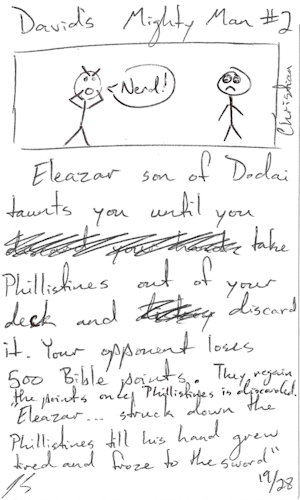 David's Mighty Man #2
Nerd!
Christian
Eleazar son of Dodai
taunts you until you
take
Phillistines out of your
deck and discard
it. Your opponent loses
500 Bible points. They regain
the points only Phillistines is discarded.
Eleazar... struck down the
Phillistines till his hand grew
tired and froze to the sword"
19/28